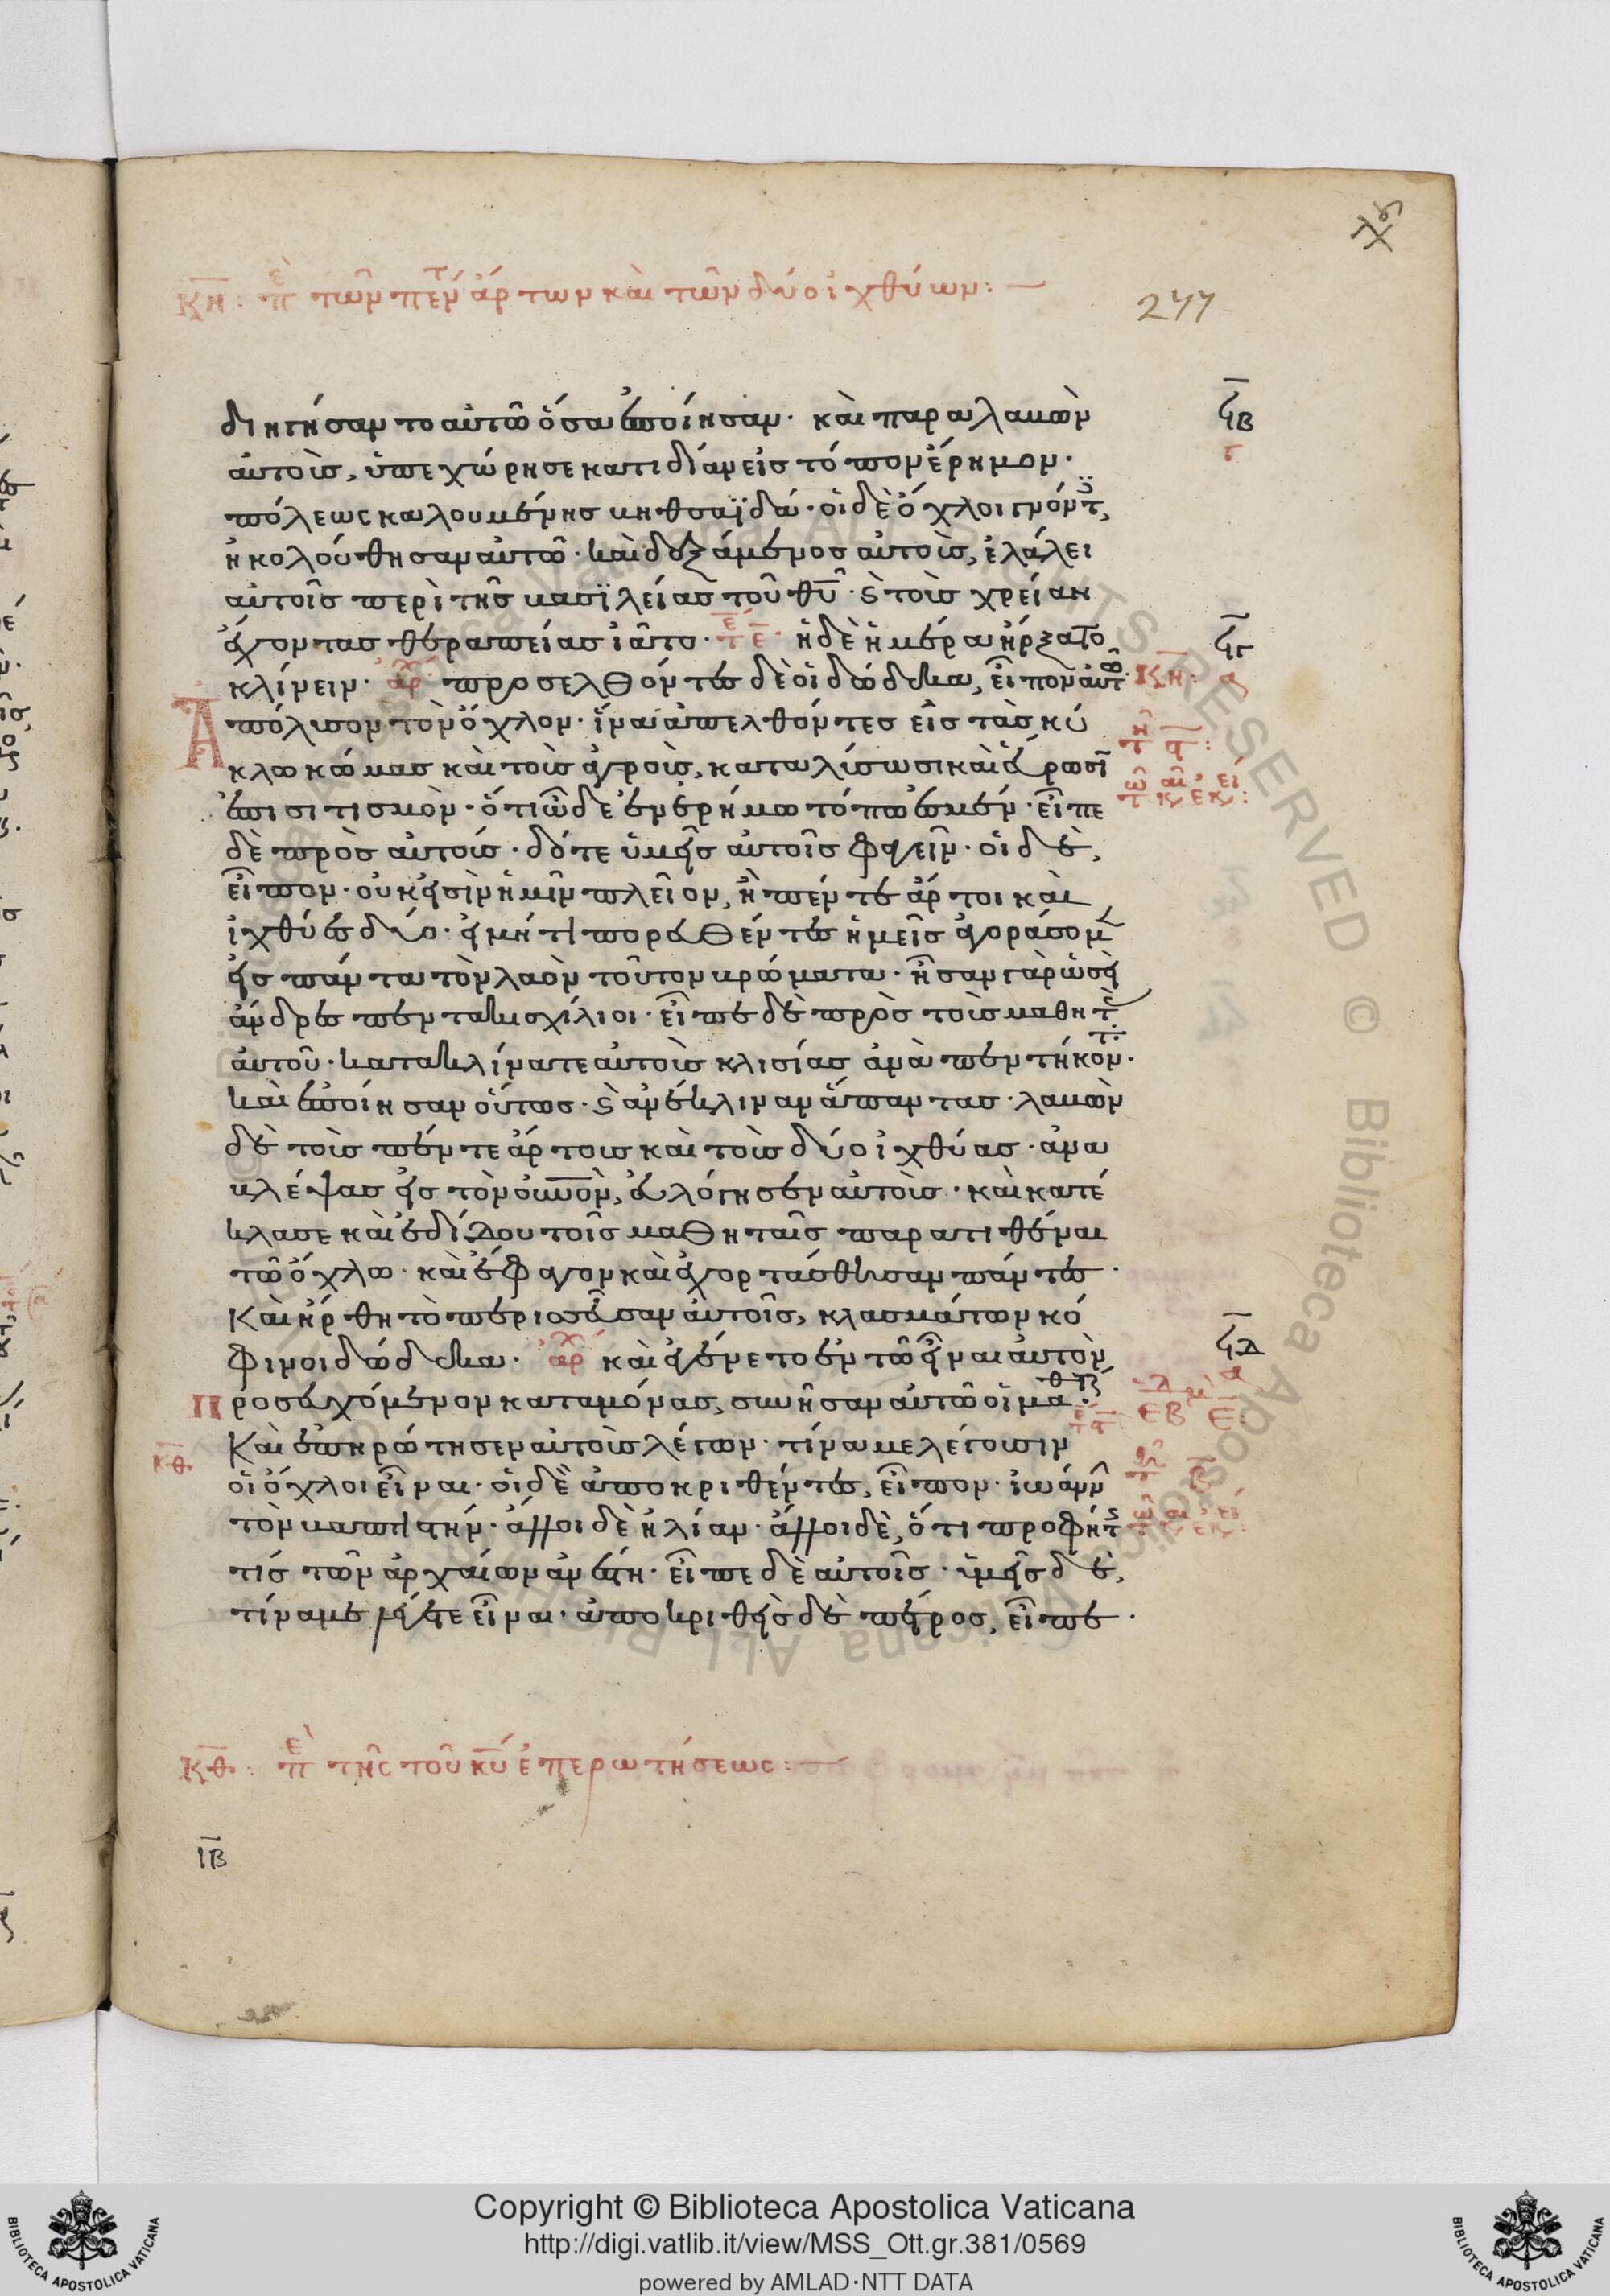 κη: πε τῶν πέντ ἄρτων καὶ τῶν δύο ἰχθύων: —
277
διηγήσαντο αὐτῶ ὅσα ἐποίησαν· καὶ παραλαβὼν
αὐτοὺς, ὑπεχώρησε κατιδίαν εἰς τόπον ἔρημον·
πόλεως καλουμένης βηθσαϊδά· οἱ δὲ ὄχλοι γνόντ,
ἠκολούθησαν αὐτῶ· καὶ δεξάμενος αὐτοὺς, ἐλάλει
αὐτοῖς περὶ τῆς βασϊλείας τοῦ θῦ· ϗ τοὺς χρείαν
ἔχοντας θεραπείας ἰᾶτο· τε ἡ δὲ ἡμέρα ἤρξατο
κλίνειν· ἀρχ προσελθόντες δὲ οἱ δώδεκα, εἶπον αὐτῶ·
Ἀπόλυσον τὸν ὄχλον· ἵνα ἀπελθόντες εἰς τὰς κύ
κλω κώμας καὶ τοὺς ἀγροὺς, καταλύσωσι καὶ εὕρωσῖ
ἐπισιτισμὸν· ὅτι ὧδε ἐν ἐρήμω τόπω ἐσμέν· εἶπε
δὲ πρὸς αὐτούς· δότε ὑμεῖς αὐτοῖς φαγεῖν· οἱ δὲ,
εἶπον· οὐκ εἰσὶν ἡμῖν πλεῖον, ἢ πέντε ἄρτοι καὶ
ἰχθύες δύο· εἰ μή τι πορευθέντες ἡμεῖς ἀγοράσομ
εἰς πάντα τὸν λαὸν τοῦτον βρώματα· ἦσαν γὰρ ὡσεὶ
ἄνδρες πεντακισχίλιοι· εἶπε δὲ πρὸς τοὺς μαθητ
αὐτοῦ· κατακλίνατε αὐτοὺς κλισίας ἀνὰ πεντήκοντ·
καὶ ἐποίησαν οὕτως· ϗ ἀνέκλιναν ἅπαντας· λαβὼν
δὲ τοὺς πέντε ἄρτους καὶ τοὺς δύο ἰχθύας· ἀνα
βλέψας εἰς τὸν οὐνὸν, εὐλόγησεν αὐτοὺς· καὶ κατέ
κλασε καὶ ἐδίδου τοῖς μαθηταῖς παρατιθέναι
τῶ ὄχλω· καὶ ἔφαγον καὶ ἐχορτάσθησαν πάντες·
Καὶ ἤρθη τὸ περισσεῦσαν αὐτοῖς, κλασμάτων κό
φινοι δώδεκα· ἀρχ καὶ ἐγένετο ἐν τῶ εἶναι αὐτὸν
Προσευχόμενον καταμόνας, συνῆσαν αὐτῶ οἱ μαθτ·
Καὶ ἐπηρώτησεν αὐτοὺς λέγων· τίνα με λέγουσιν
κθ·
οἱ ὄχλοι εἶναι· οἱ δὲ ἀποκριθέντες, εἶπον· ἰωάνν
τὸν βαπτιστήν· ἄλλοι δὲ ἠλίαν· ἄλλοι δὲ, ὅτι προφήτ
τίς τῶν ἀρχαίων ἀνέστη· εἶπε δὲ αὐτοῖς· ὑμεῖς δὲ,
τίνα με λέγετε εἶναι· ἀποκριθεὶς δὲ πέτρος, εἶπε·
κθ: πε τῆς τοῦ κῦ ἐπερωτήσεως:
ιβ
Copyright © Biblioteca Apostolica Vaticana
http://digi.vatlib.it/view/MSS_Ott.gr.381/0569
powered by AMLAD·NTT DATA
BIBLIOTECA APOSTOLICA VATICANA
BIBLIOTECA APOSTOLICA VATICANA